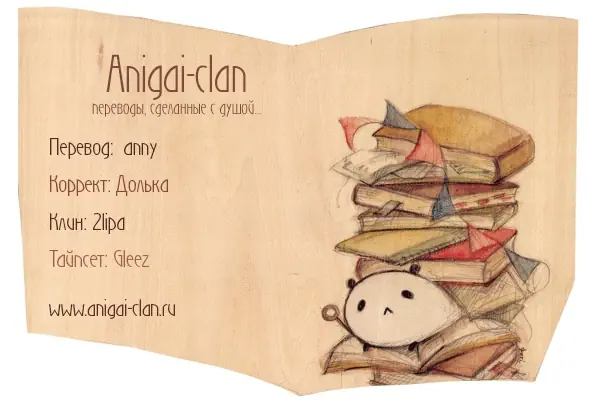 Anigai-clan
переводы, сделанные с душой...
Перевод: anny
Коррект: Долька
Клин: 2lipa
Тайпсет: Gleez
www.anigai-clan.ru